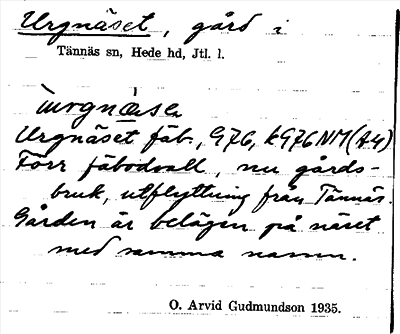 Urgnäset, gård i
Tännäs sn, Hede hd, Jtl. l.
Urgnäset fäb., G76, kG76NM(A4)
Förr fäbodvall, nu gårds-
bruk, utflyttning från Tännäs.
Gården är belägen på näset
med samma namn.
O. Arvid Gudmundson 1935.